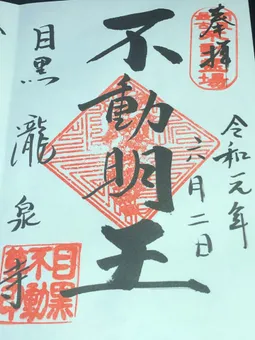 奉拝
令和元年
六月二日
不動明王
目黒
瀧泉寺
目黒
不動